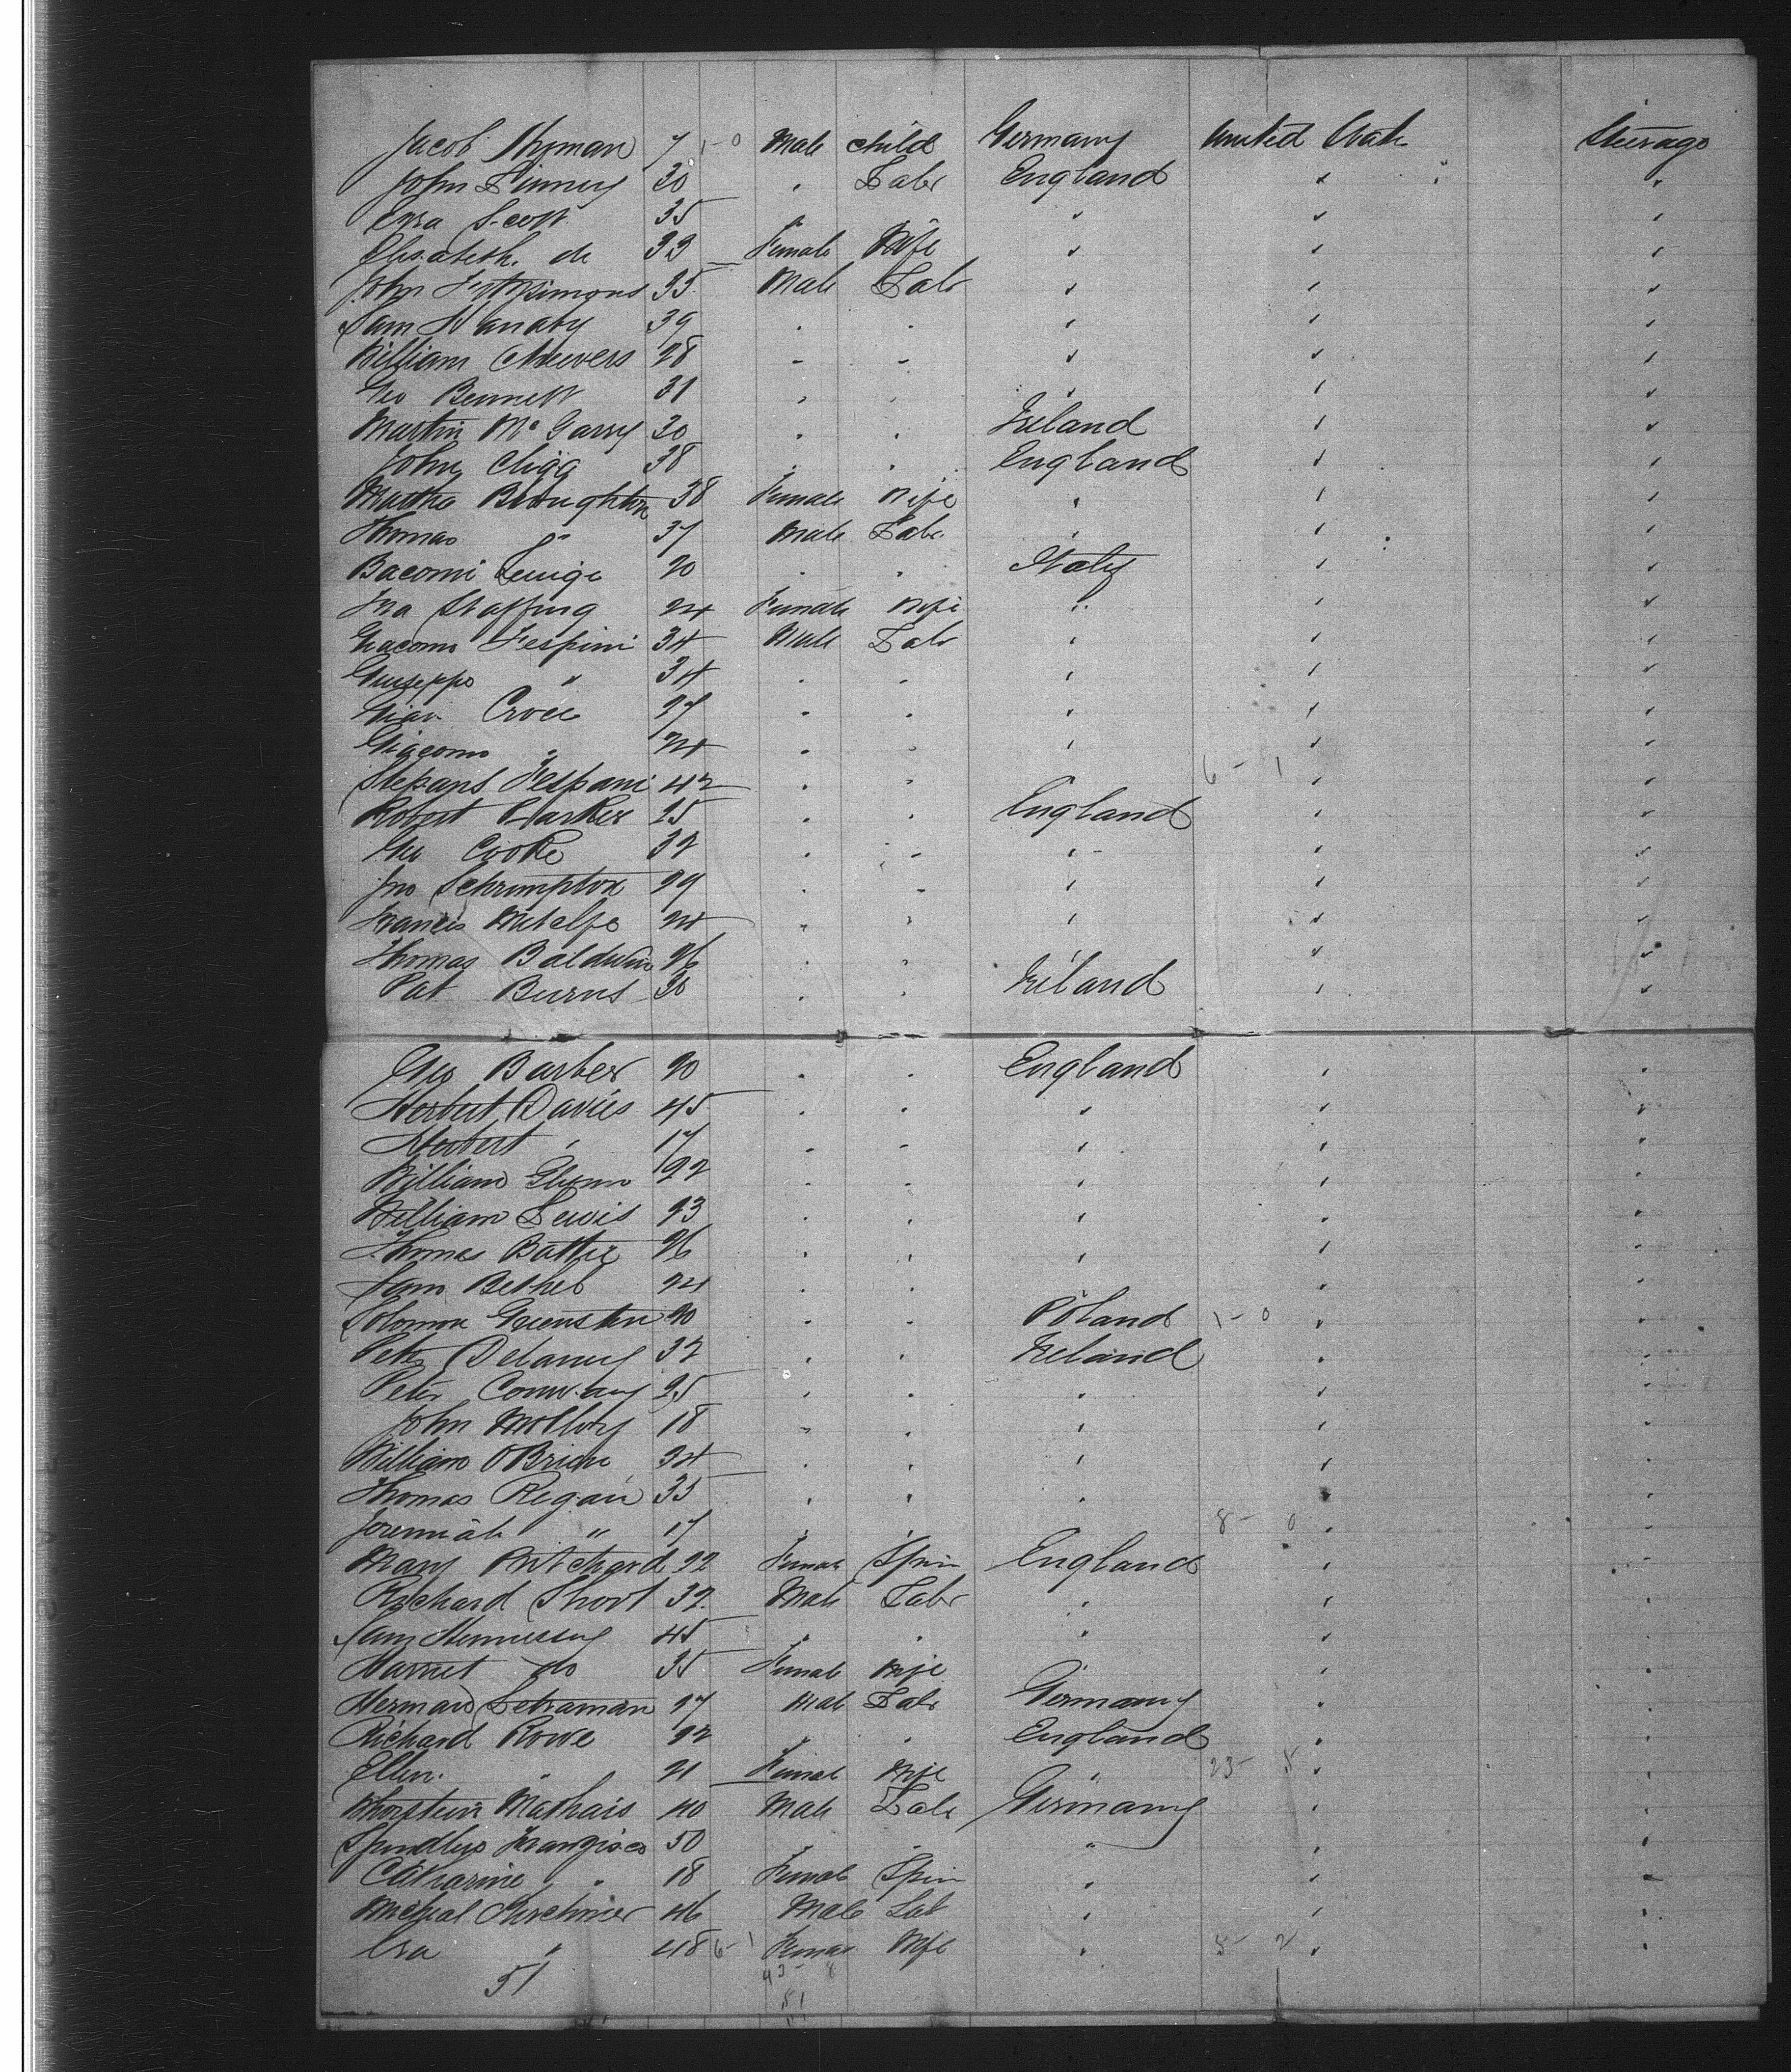 Jacob Hyman 7 1-0 Male Child Germany United State Steerage
John Finney 30 " Labr England " "
Ezra Scott 35 " " "
Elisabeth do 33 Female Wife " " "
John Fitzsimons 35 Male Labr " " "
Sam Hanaby 39 " " " " "
William Cheevers 28 " " " " "
Geo Bennett 31 " " " " "
Martin McGarry 30 " " Ireland " "
John Cligg 38 " " England " "
Martha Broughton 38 Female Wife " " "
Thomas " 37 Male Labr " " "
Bacomi Luigi 20 " " Italy " "
Ira Staffing 24 Female Wife " " "
Giacomo Fespini 34 Male Labr " " "
Guiseppe " 34 " " " " "
Gian Croce 27 " " " " "
Giacomo " 24 " " " " "
Stepans Fespani 42 " " 6-1 " "
Robert Parker 25 " " England " "
Geo Cooke 32 " " " " "
Jno Schrimpton 29 " " " " "
Francis Metcalfe 24 " " " " "
Thomas Baldwin 26 " " " "
Pat Burns 30 " " Ireland " "
Geo Barber 20 " " England " "
Herbert Davies 45 " " " " "
Herbert " 17 " " " " "
William Glynn 22 " " " " "
William Lewis 23 " " " " "
Thomas Battie 26 " " " " "
Sam Bethel 24 " " " "
Solomon Greensten 20 " " Poland 1-0 " "
Peter Delaney 32 " " Ireland " "
Peter Conway 25 " " " " "
John Molloy 18 " " " " "
William O'Brien 34 " " " " "
Thomas Regan 35 " " " " "
Jeremiah " 17 " " 8-0 " "
Mary Pritchard 22 Female Spin England " "
Richard Short 32 Male Labr " " "
Sam Hennessey 45 " " " " "
Harriet do 35 Female Wife " "
Herman Schraman 27 Male Labr Germany " "
Richard Rowe 22 " " England " "
Ellen " 21 Female Wife " 23-5 " "
Mathais 40 Male Labr Germany " "
Frangisco 50 " " " "
Catharine " 18 Female Spin " " "
Micheal Kirchner 46 Male Lab " " "
" 48 6-1 Female Wife " 5-2 " "
51 43-8
51